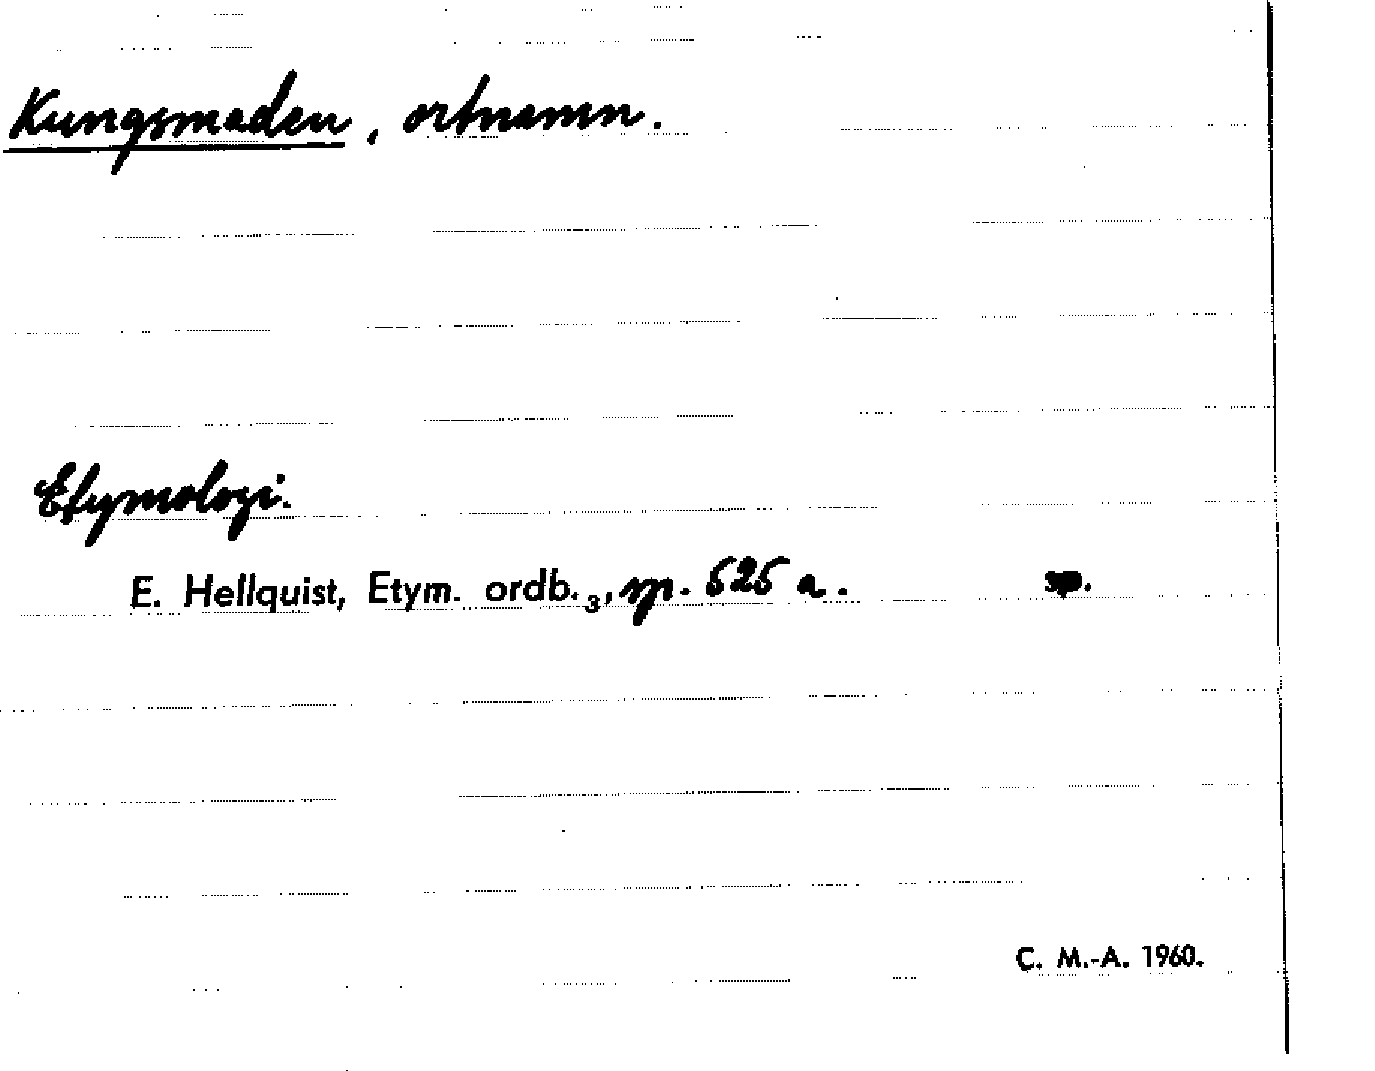 Kungsmaden, ortnamn.
Etymologi.
E. Hellquist, Etym. ordb. 3, sp. 625 a. sp.
C. M.-A. 1960.